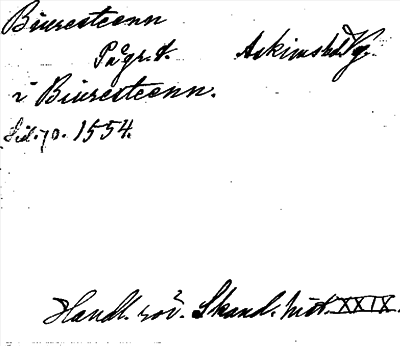 Biuresteenn
På gr. t. Askims hd Vg.
i Biuresteenn.
Sid. 70. 1554.
Handl. rör. Skand. hist. XXIX.